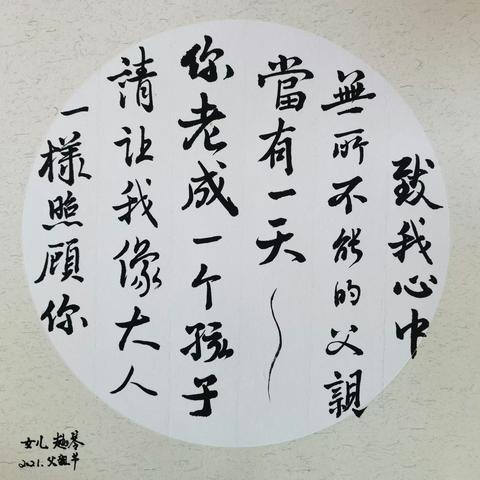 致我心中
無所不能的父親
當有一天~
你老成一个孩子
请让我像大人
一樣照顾你
女儿 赵琴
2021.父親节